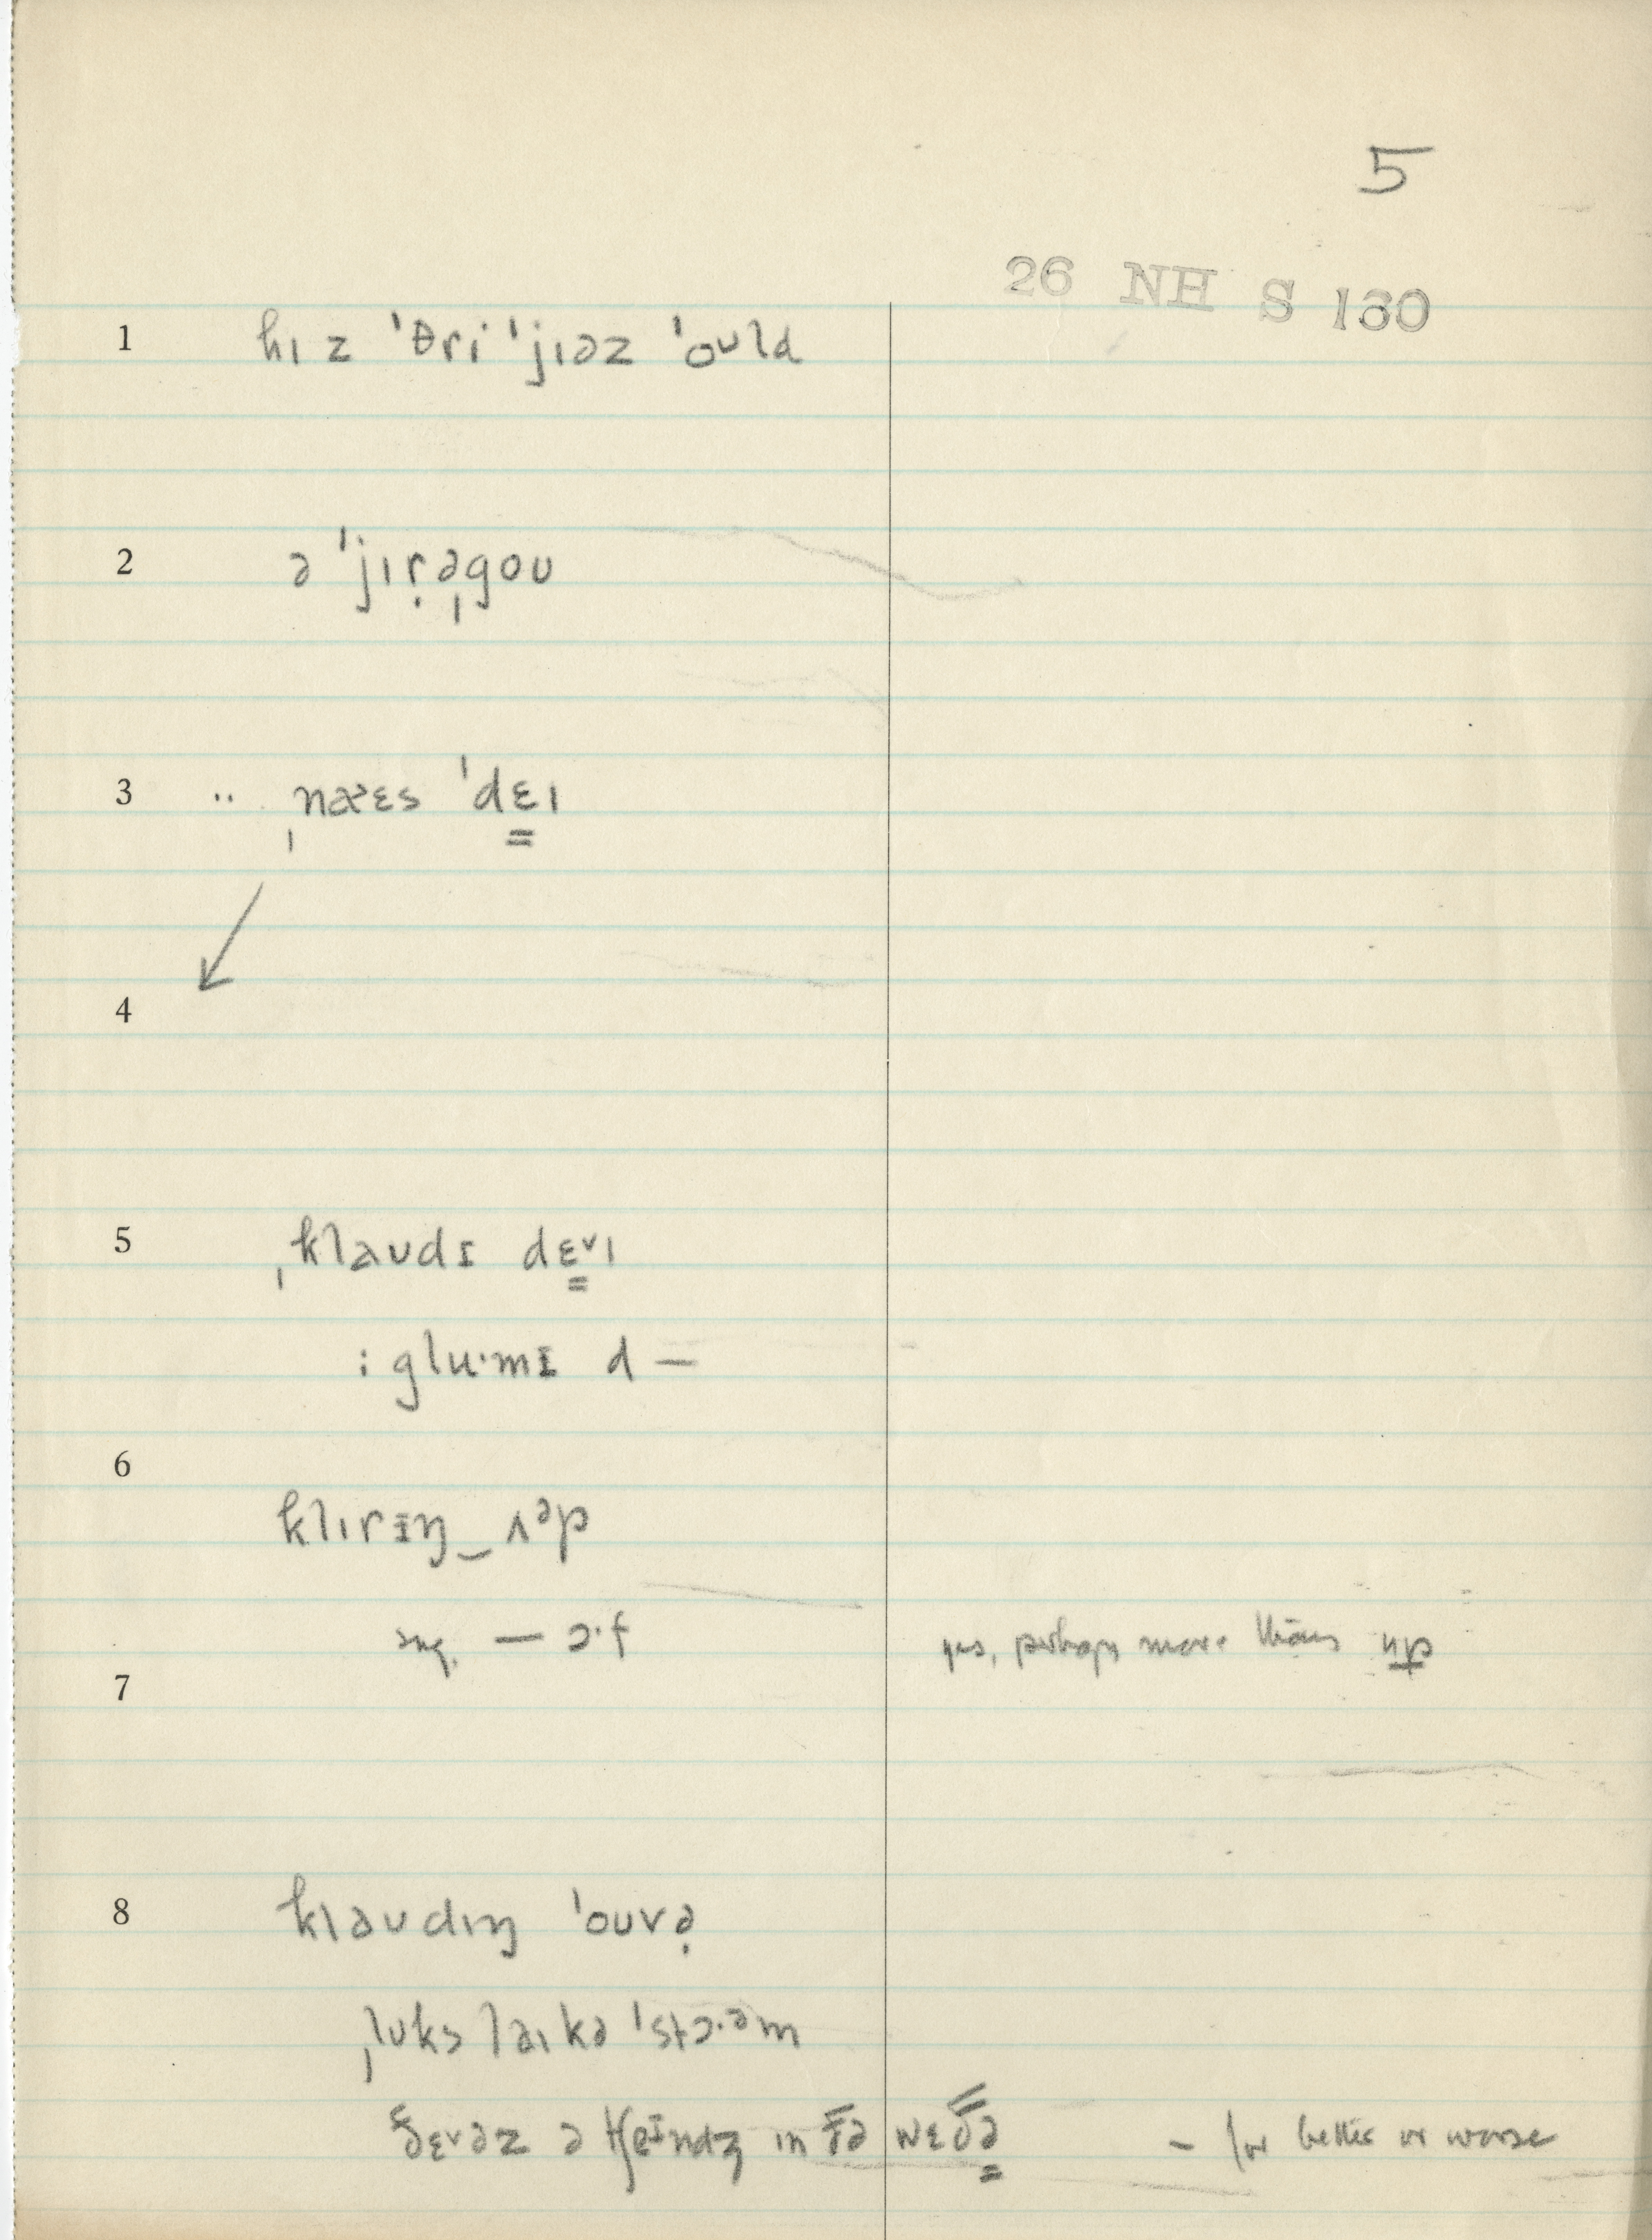 5
26 NH S 130
1 hɪ z ˈθri ˈjɪəz ˈoʊld
2 ə ˈjɪṛəˌgoʊ
3 ¨ ˌnaˑɛs ˈdɛ̳ɪ
4
5 ˌklaʊdɪ dɛ̳˅ɪ
: gluˑmɪ d —
6 klɪrɪŋ‿ʌᵊp
sug. — ɔˑf yes, perhaps more than up
7
8 kləʊdɪŋ ˈoʊvə̣
ˌlʊks laɪkə ˈstɔˑəm
ðɛ˅əz ə tʃeɪndʒ ɪn ðə wɛðə̳ – for better or worse